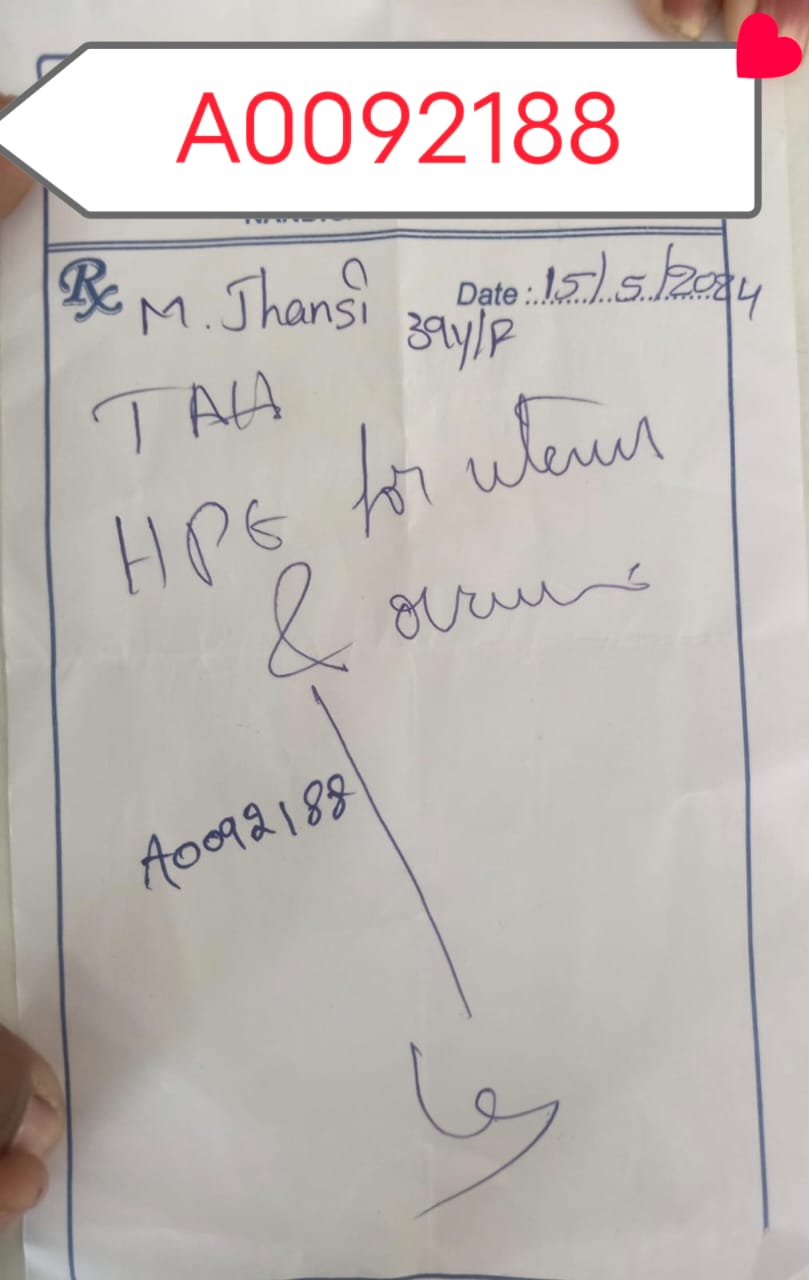 A0092188
Rx M. Jhansi Date : 15/5/2024
39y/F
TAH
HPE for uterus
& ovaries
A0092188